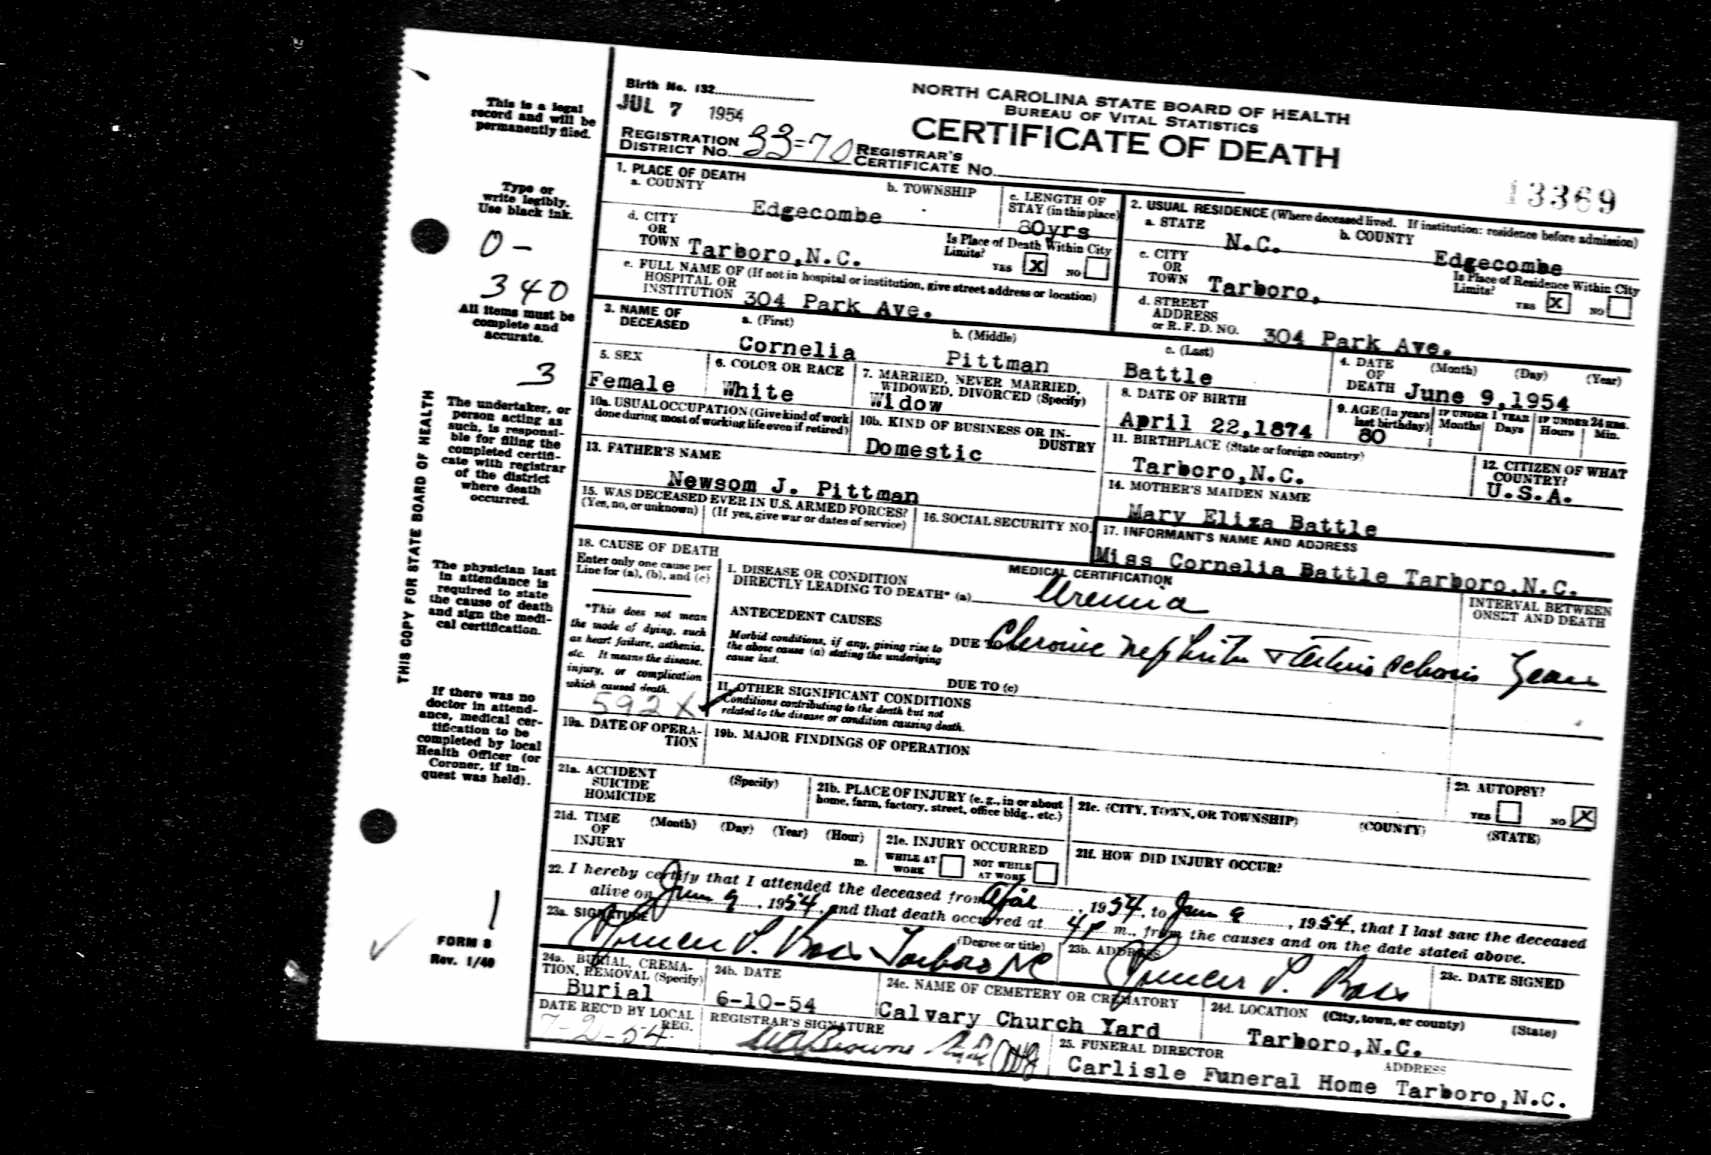 This is a legal
record and will be
permanently filed.
Type or
write legibly.
Use black ink.
0-
340
All items must be
complete and
accurate.
3
The undertaker, or
person acting as
such, is responsi-
ble for filing the
completed certifi-
cate with registrar
of the district
where death
occurred.
The physician last
in attendance is
required to state
the cause of death
and sign the medi-
cal certification.
If there was no
doctor in attend-
ance, medical cer-
tification to be
completed by local
Health Officer (or
Coroner, if in-
quest was held).
1
FORM 8
Rev. 1/49
THIS COPY FOR STATE BOARD OF HEALTH
Birth No. 132
JUL 7 1954
NORTH CAROLINA STATE BOARD OF HEALTH
BUREAU OF VITAL STATISTICS
CERTIFICATE OF DEATH
REGISTRATION DISTRICT NO. 33-70 REGISTRAR'S CERTIFICATE NO.
13369
1. PLACE OF DEATH
a. COUNTY Edgecombe
b. TOWNSHIP
c. LENGTH OF STAY (in this place) 80yrs
d. CITY OR TOWN Tarboro,N.C.
Is Place of Death Within City Limits? YES X NO
e. FULL NAME OF HOSPITAL OR INSTITUTION (If not in hospital or institution, give street address or location)
304 Park Ave.
2. USUAL RESIDENCE (Where deceased lived. If institution: residence before admission)
a. STATE N.C.
b. COUNTY Edgecombe
c. CITY OR TOWN Tarboro,
Is Place of Residence Within City Limits? YES X NO
d. STREET ADDRESS or R. F. D. NO. 304 Park Ave.
3. NAME OF DECEASED
a. (First) Cornelia
b. (Middle) Pittman
c. (Last) Battle
4. DATE OF DEATH (Month) (Day) (Year) June 9,1954
5. SEX Female
6. COLOR OR RACE White
7. MARRIED, NEVER MARRIED, WIDOWED, DIVORCED (Specify) Widow
8. DATE OF BIRTH April 22,1874
9. AGE (In years last birthday) 80
IF UNDER 1 YEAR Months Days
IF UNDER 24 HRS. Hours Min.
10a. USUAL OCCUPATION (Give kind of work done during most of working life even if retired)
10b. KIND OF BUSINESS OR INDUSTRY Domestic
11. BIRTHPLACE (State or foreign country) Tarboro,N.C.
12. CITIZEN OF WHAT COUNTRY? U.S.A.
13. FATHER'S NAME
Newsom J. Pittman
14. MOTHER'S MAIDEN NAME
Mary Eliza Battle
15. WAS DECEASED EVER IN U.S. ARMED FORCES?
(Yes, no, or unknown) (If yes, give war or dates of service)
16. SOCIAL SECURITY NO.
17. INFORMANT'S NAME AND ADDRESS
Miss Cornelia Battle Tarboro,N.C.
18. CAUSE OF DEATH
Enter only one cause per
Line for (a), (b), and (c)
*This does not mean
the mode of dying, such
as heart failure, asthenia,
etc. It means the disease,
injury, or complication
which caused death.
592X
MEDICAL CERTIFICATION
I. DISEASE OR CONDITION
DIRECTLY LEADING TO DEATH* (a) Uremia
INTERVAL BETWEEN
ONSET AND DEATH
ANTECEDENT CAUSES
Morbid conditions, if any, giving rise to
the above cause (a) stating the underlying
cause last.
DUE Chronic nephritis
DUE TO (c)
II. OTHER SIGNIFICANT CONDITIONS
Conditions contributing to the death but not
related to the disease or condition causing death.
19a. DATE OF OPERA-
TION
19b. MAJOR FINDINGS OF OPERATION
20. AUTOPSY?
YES NO X
21a. ACCIDENT
SUICIDE
HOMICIDE
(Specify)
21b. PLACE OF INJURY (e. g., in or about
home, farm, factory, street, office bldg., etc.)
21c. (CITY, TOWN, OR TOWNSHIP) (COUNTY) (STATE)
21d. TIME OF INJURY (Month) (Day) (Year) (Hour) m.
21e. INJURY OCCURRED
WHILE AT WORK NOT WHILE AT WORK
21f. HOW DID INJURY OCCUR?
22. I hereby certify that I attended the deceased from , 1954, to June 9, 1954, that I last saw the deceased
alive on June 9, 1954, and that death occurred at 4P m., from the causes and on the date stated above.
23a. SIGNATURE (Degree or title) Tarboro NC
23b. ADDRESS
23c. DATE SIGNED
24a. BURIAL, CREMA-
TION, REMOVAL (Specify)
Burial
24b. DATE
6-10-54
24c. NAME OF CEMETERY OR CREMATORY
Calvary Church Yard
24d. LOCATION (City, town, or county) (State)
Tarboro,N.C.
DATE REC'D BY LOCAL REG.
7-2-54
REGISTRAR'S SIGNATURE
25. FUNERAL DIRECTOR ADDRESS
Carlisle Funeral Home Tarboro,N.C.